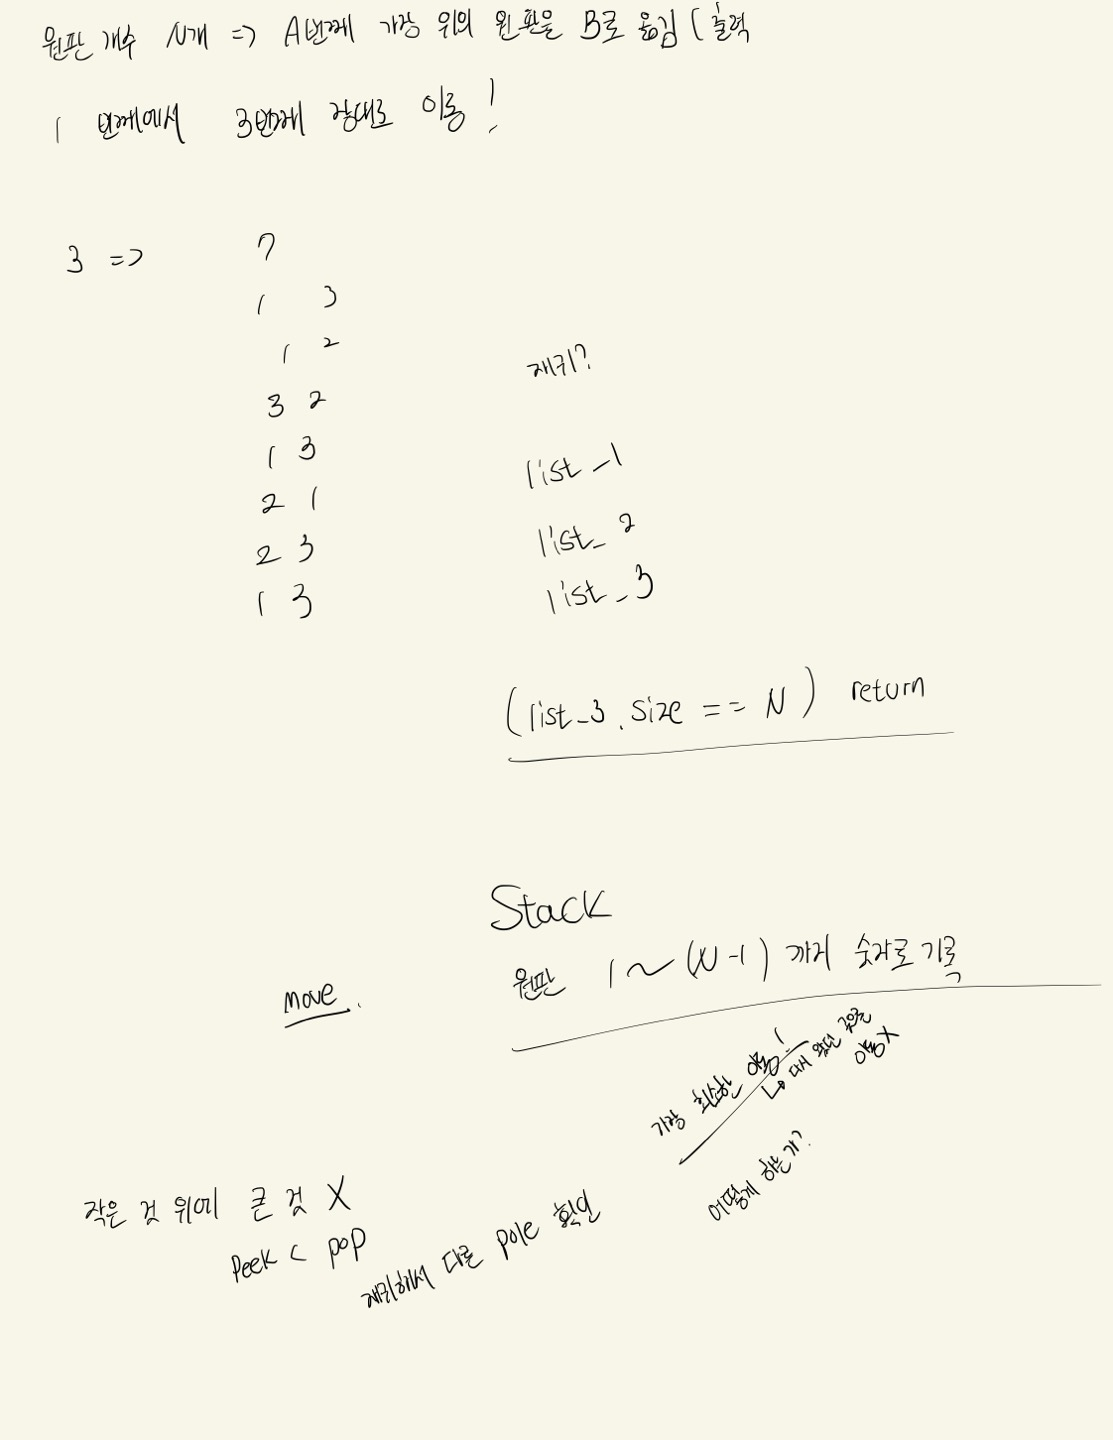 원판 개수 N개 => A번째 가장 위의 원판을 B로 옮김 (출력
1 번째에서 3번째 장대로 이동!
3 => 7
1 3
1 2
3 2
1 3
2 1
2 3
1 3
재귀?
list_1
list_2
list_3
(list_3.size == N) return
Stack
원판 1~(N-1) 까지 숫자로 기록
move.
가장 최소한 이동!
↳ 다시 왔던 곳으로 이동X
어떻게 하는가?
작은 것 위에 큰 것 X
peek < pop
재귀해서 다른 pole 확인